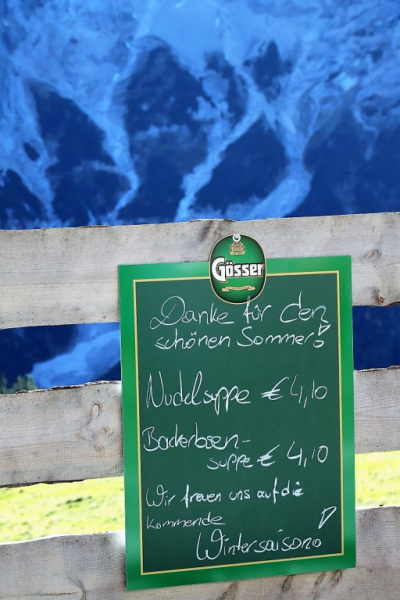 Gösser
Danke für den
schönen Sommer!
Nudelsuppe € 4,10
Backerbsen-
suppe € 4,10
Wir freuen uns auf die
kommende
Wintersaison!